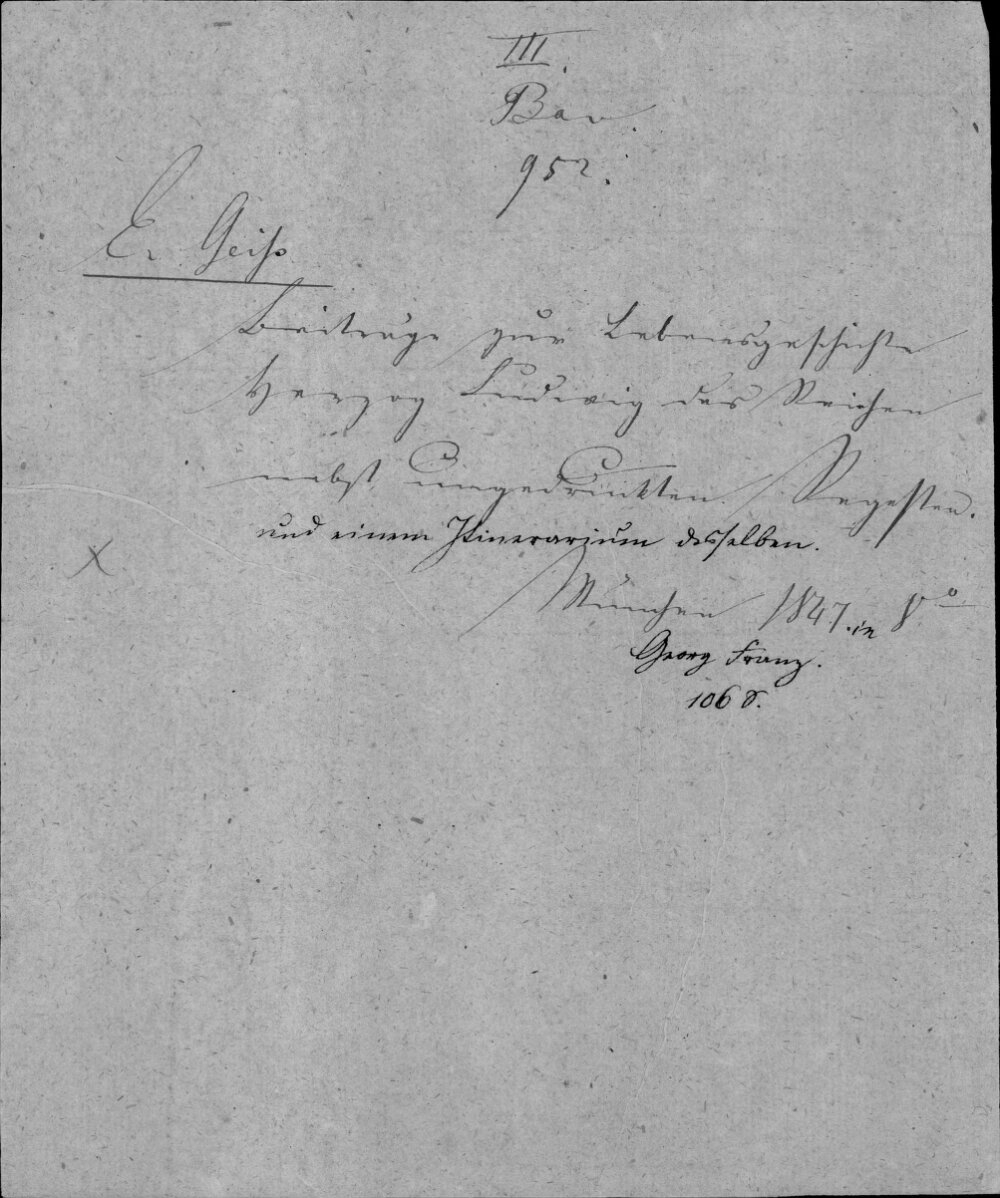 III.
Bav.
952.
E. Geiß
Beiträge zur Lebensgeschichte
Herzog Ludwig des Reichen
nebst ungedruckten Regesten.
und einem Itinerarium desselben.
X
München 1847. in 8º
Georg Franz.
106 S.